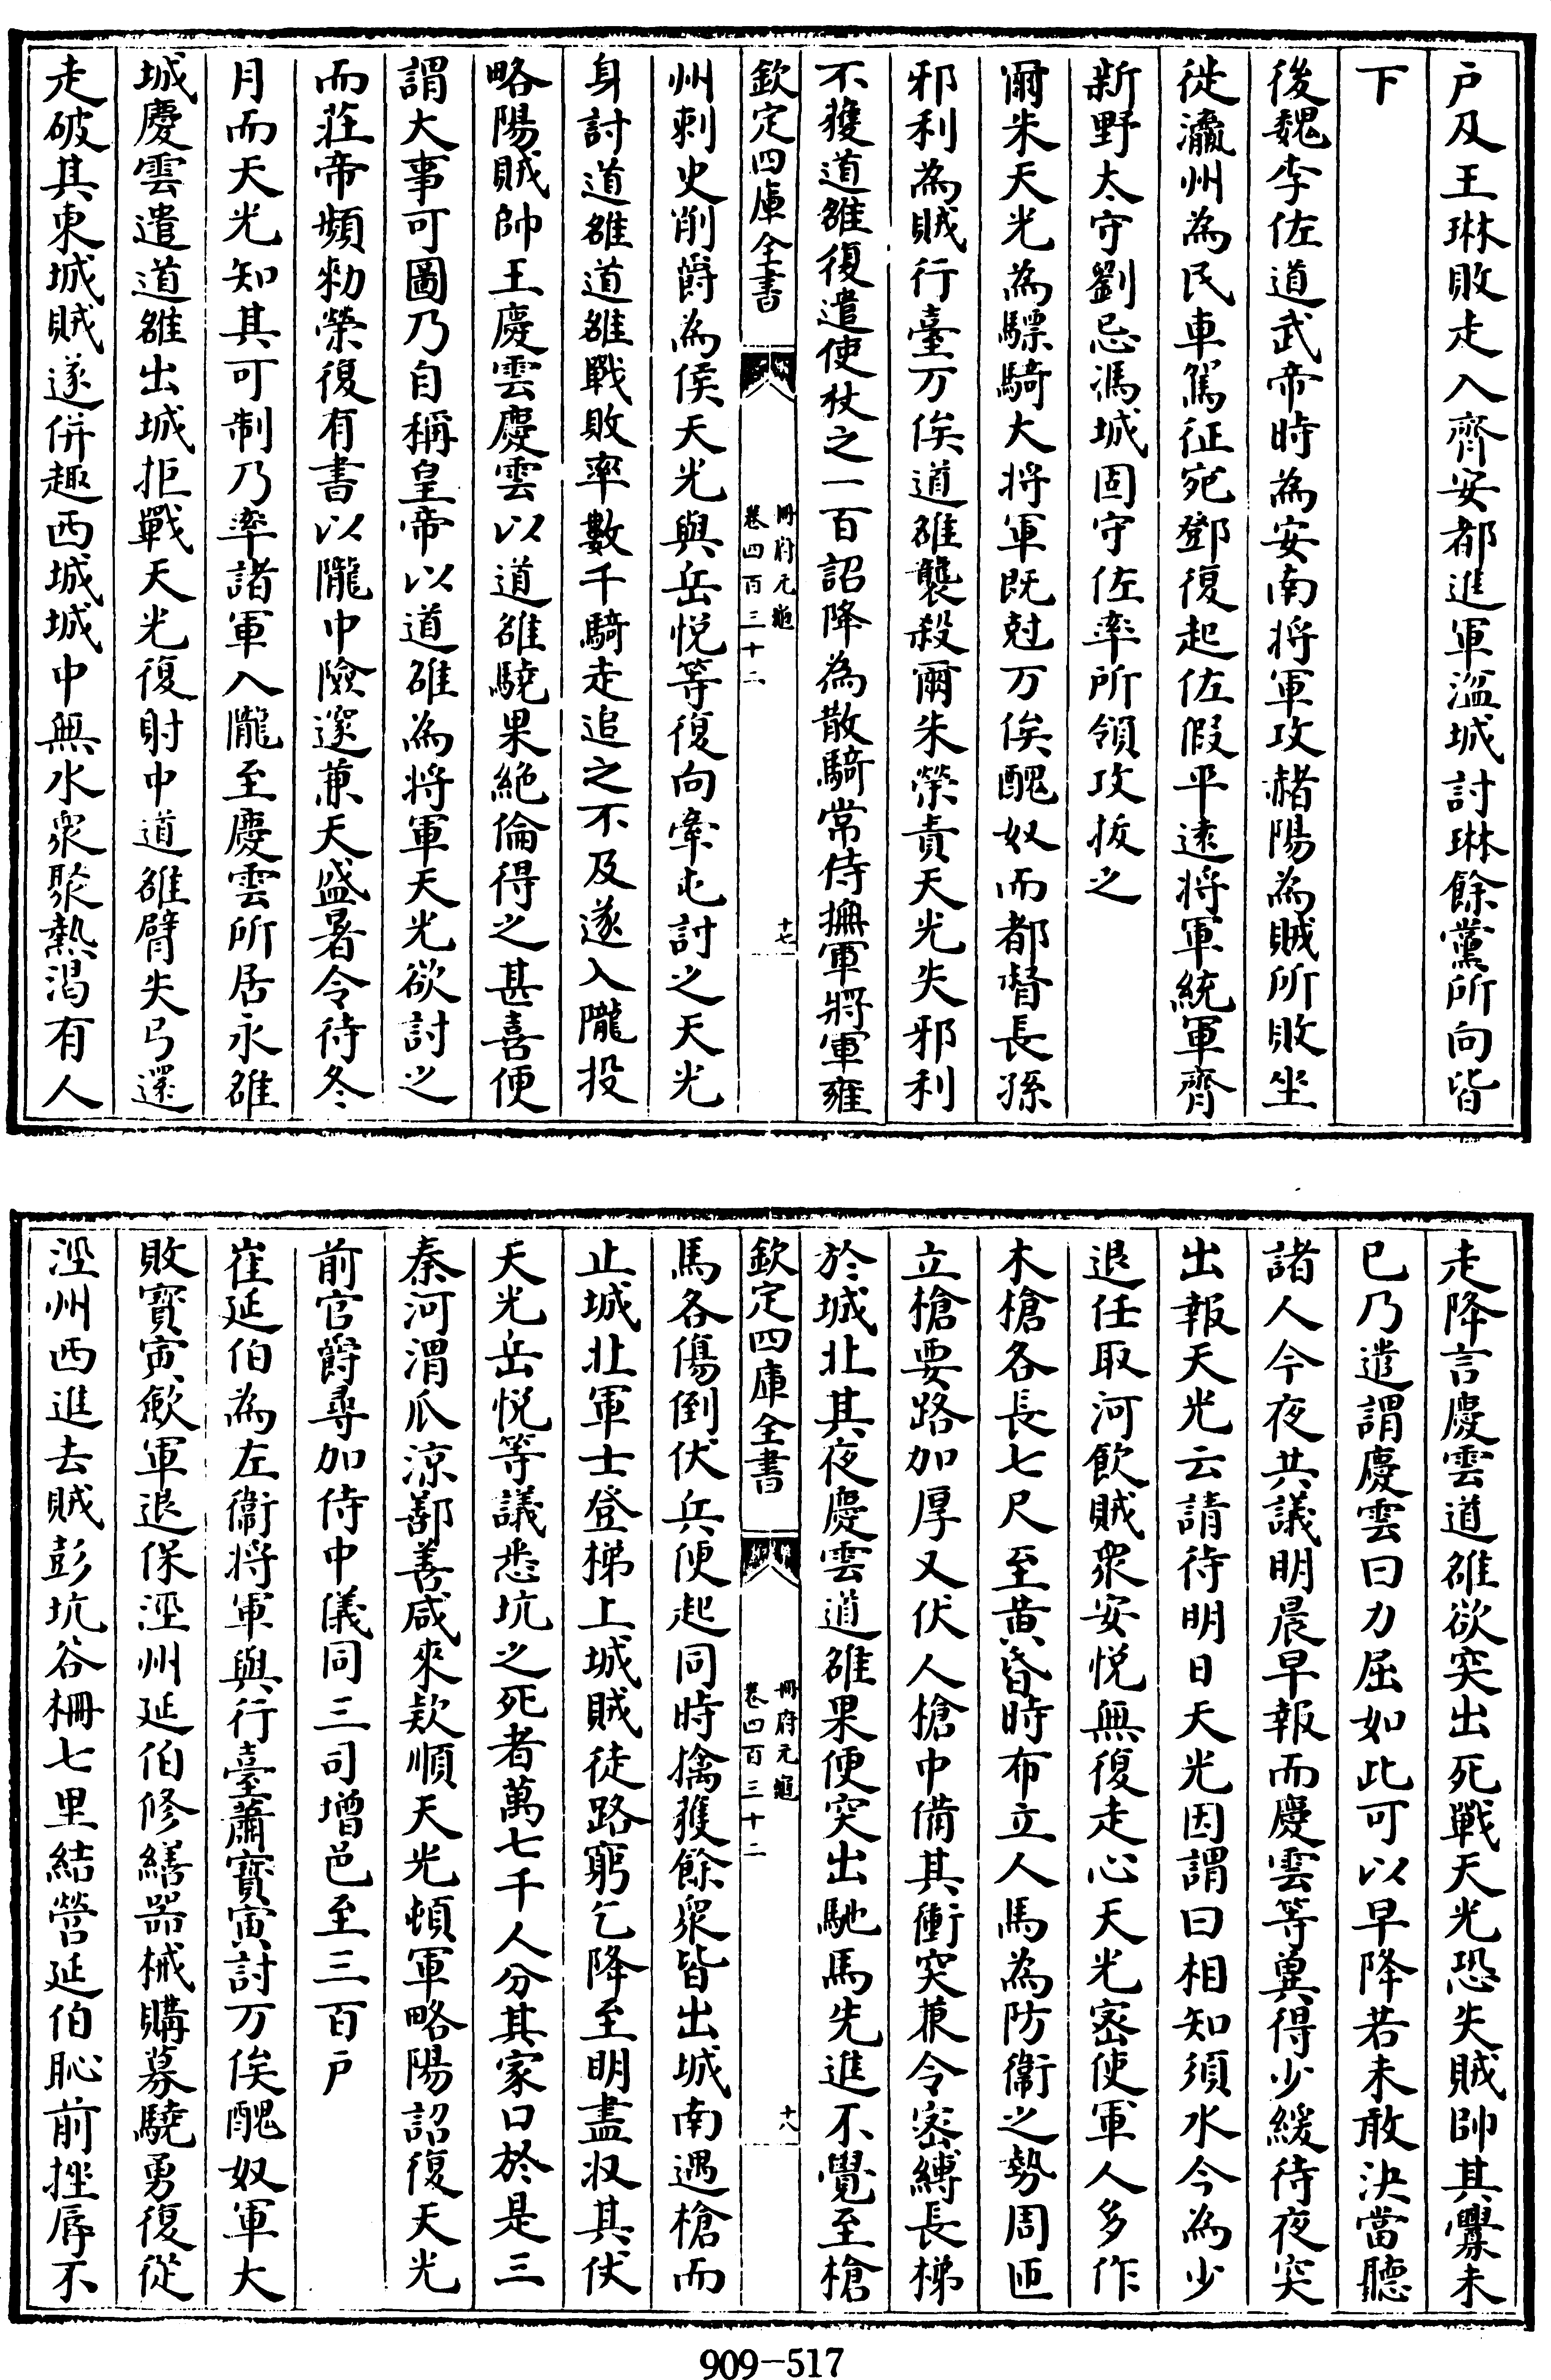 戸及王琳敗走入齊安都進軍湓城討琳餘黨所向皆
下
後魏李佐道武帝時為安南将軍攻赭陽為賊所敗坐
徙瀛州為民車駕征宛鄧復起佐假平逺將軍統軍齊
新野太守劉忌馮城固守佐率所領攻拔之
爾朱天光為驃騎大将軍既尅万俟醜奴而都督長孫
邪利為賊行臺万俟道雒襲殺爾朱榮責天光失邪利
不獲道雒復遣使杖之一百詔降為散騎常侍撫軍將軍雍
欽定四庫全書
冊府元龜
卷四百三十二
十七
州刺史削爵為侯天光與岳悅等復向牽屯討之天光
身討道雒道雒戰敗率數千騎走追之不及遂入隴投
略陽賊帥王慶雲慶雲以道雒驍果絶倫得之甚喜便
謂大事可圖乃自稱皇帝以道雒為将軍天光欲討之
而莊帝頻勑榮復有書以隴中險邃兼天盛暑令待冬
月而天光知其可制乃率諸軍入隴至慶雲所居永雒
城慶雲遣道雒出城拒戰天光復射中道雒臂失弓還
走破其東城賊遂併趣西城城中無水衆聚熱渴有人
走降言慶雲道雒欲突出死戰天光恐失賊帥其釁未
已乃遣謂慶雲曰力屈如此可以早降若未敢決當聽
諸人今夜共議明晨早報而慶雲等冀得少緩待夜突
出報天光云請待明日天光因謂曰相知須水今為少
退任取河飲賊衆安悅無復走心天光密使軍人多作
木槍各長七尺至黃昏時布立人馬為防衛之勢周匝
立槍要路加厚又伏人槍中備其衝突兼令密縛長梯
於城北其夜慶雲道雒果便突出馳馬先進不覺至槍
欽定四庫全書
冊府元龜
卷四百三十二
十八
馬各傷倒伏兵便起同時擒獲餘衆皆出城南遇槍而
止城北軍士登梯上城賊徒路窮乞降至明盡収其仗
天光岳悅等議悉坑之死者萬七千人分其家口於是三
秦河渭瓜涼鄯善咸來款順天光頓軍略陽詔復天光
前官爵尋加侍中儀同三司增邑至三百戸
崔延伯為左衞将軍與行臺蕭寳寅討万俟醜奴軍大
敗寳寅歛軍退保涇州延伯修繕器械購募驍勇復從
涇州西進去賊彭坑谷柵七里結營延伯恥前挫辱不
909-517